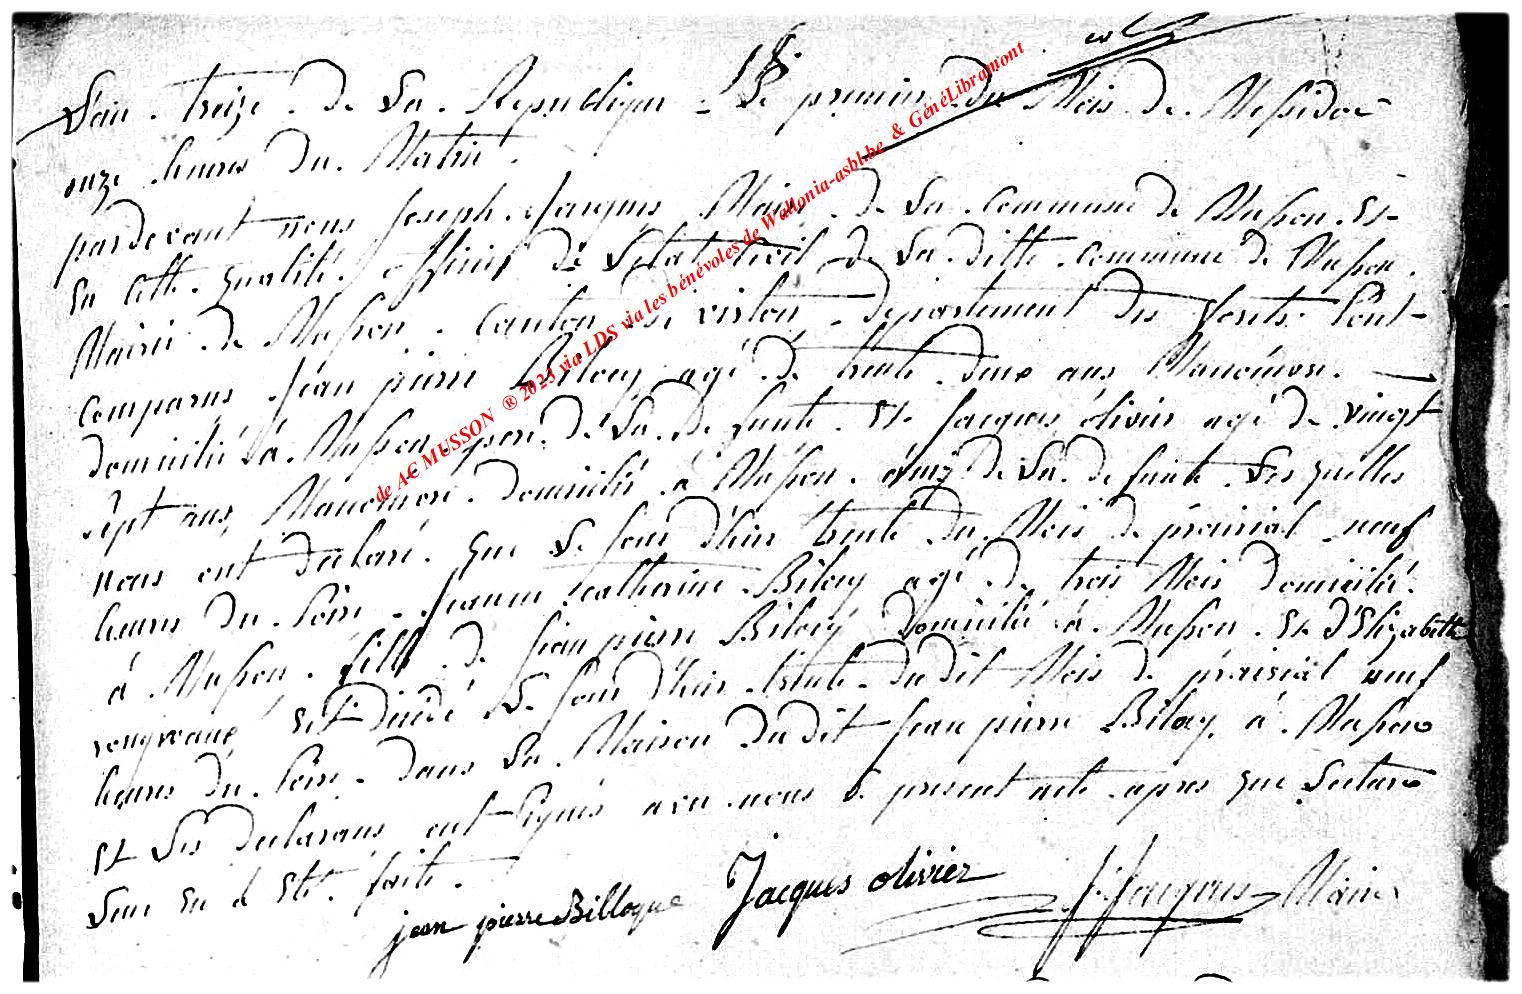 L'an treize de la Republique le premier du Mois de Messidor
onze heures du Matin.
pardevant nous Joseph Jacques Maire de la Commune de Musson et
en cette qualité officier de l'etat Civil de la ditte Commune de Musson.
Mairie de Musson. Canton de virton departement des forêts sont
comparus jean pierre Biloey agé de trente deux ans Manœuvre.
domicilié à Musson pere de la defunte et jacques olivier agé de vingt
sept ans Manœuvre domicilié à Musson. de la defunte lesquelles
nous ont declaré que le jour d'hier trente du Mois de prairial neuf
heures du soire jeanne catherine Biloey agé de trois Mois domicilié
à Musson. fille de jean pierre Biloey domicilié à Musson. et d'Elizabette
est decedé le jour d'hier trente dudit Mois de prairial neuf
heures du soire dans la Maison dudit jean pierre Biloey à Musson
et les declarans ont signés avec nous le present acte apres que lecture
leur en à eté faite.
jean pierre Billoque Jacques olivier J: Jacques Maire
de AC MUSSON ® 2023 via LDS via les bénévoles de Wallonia-asbl.be & GénéLibramont